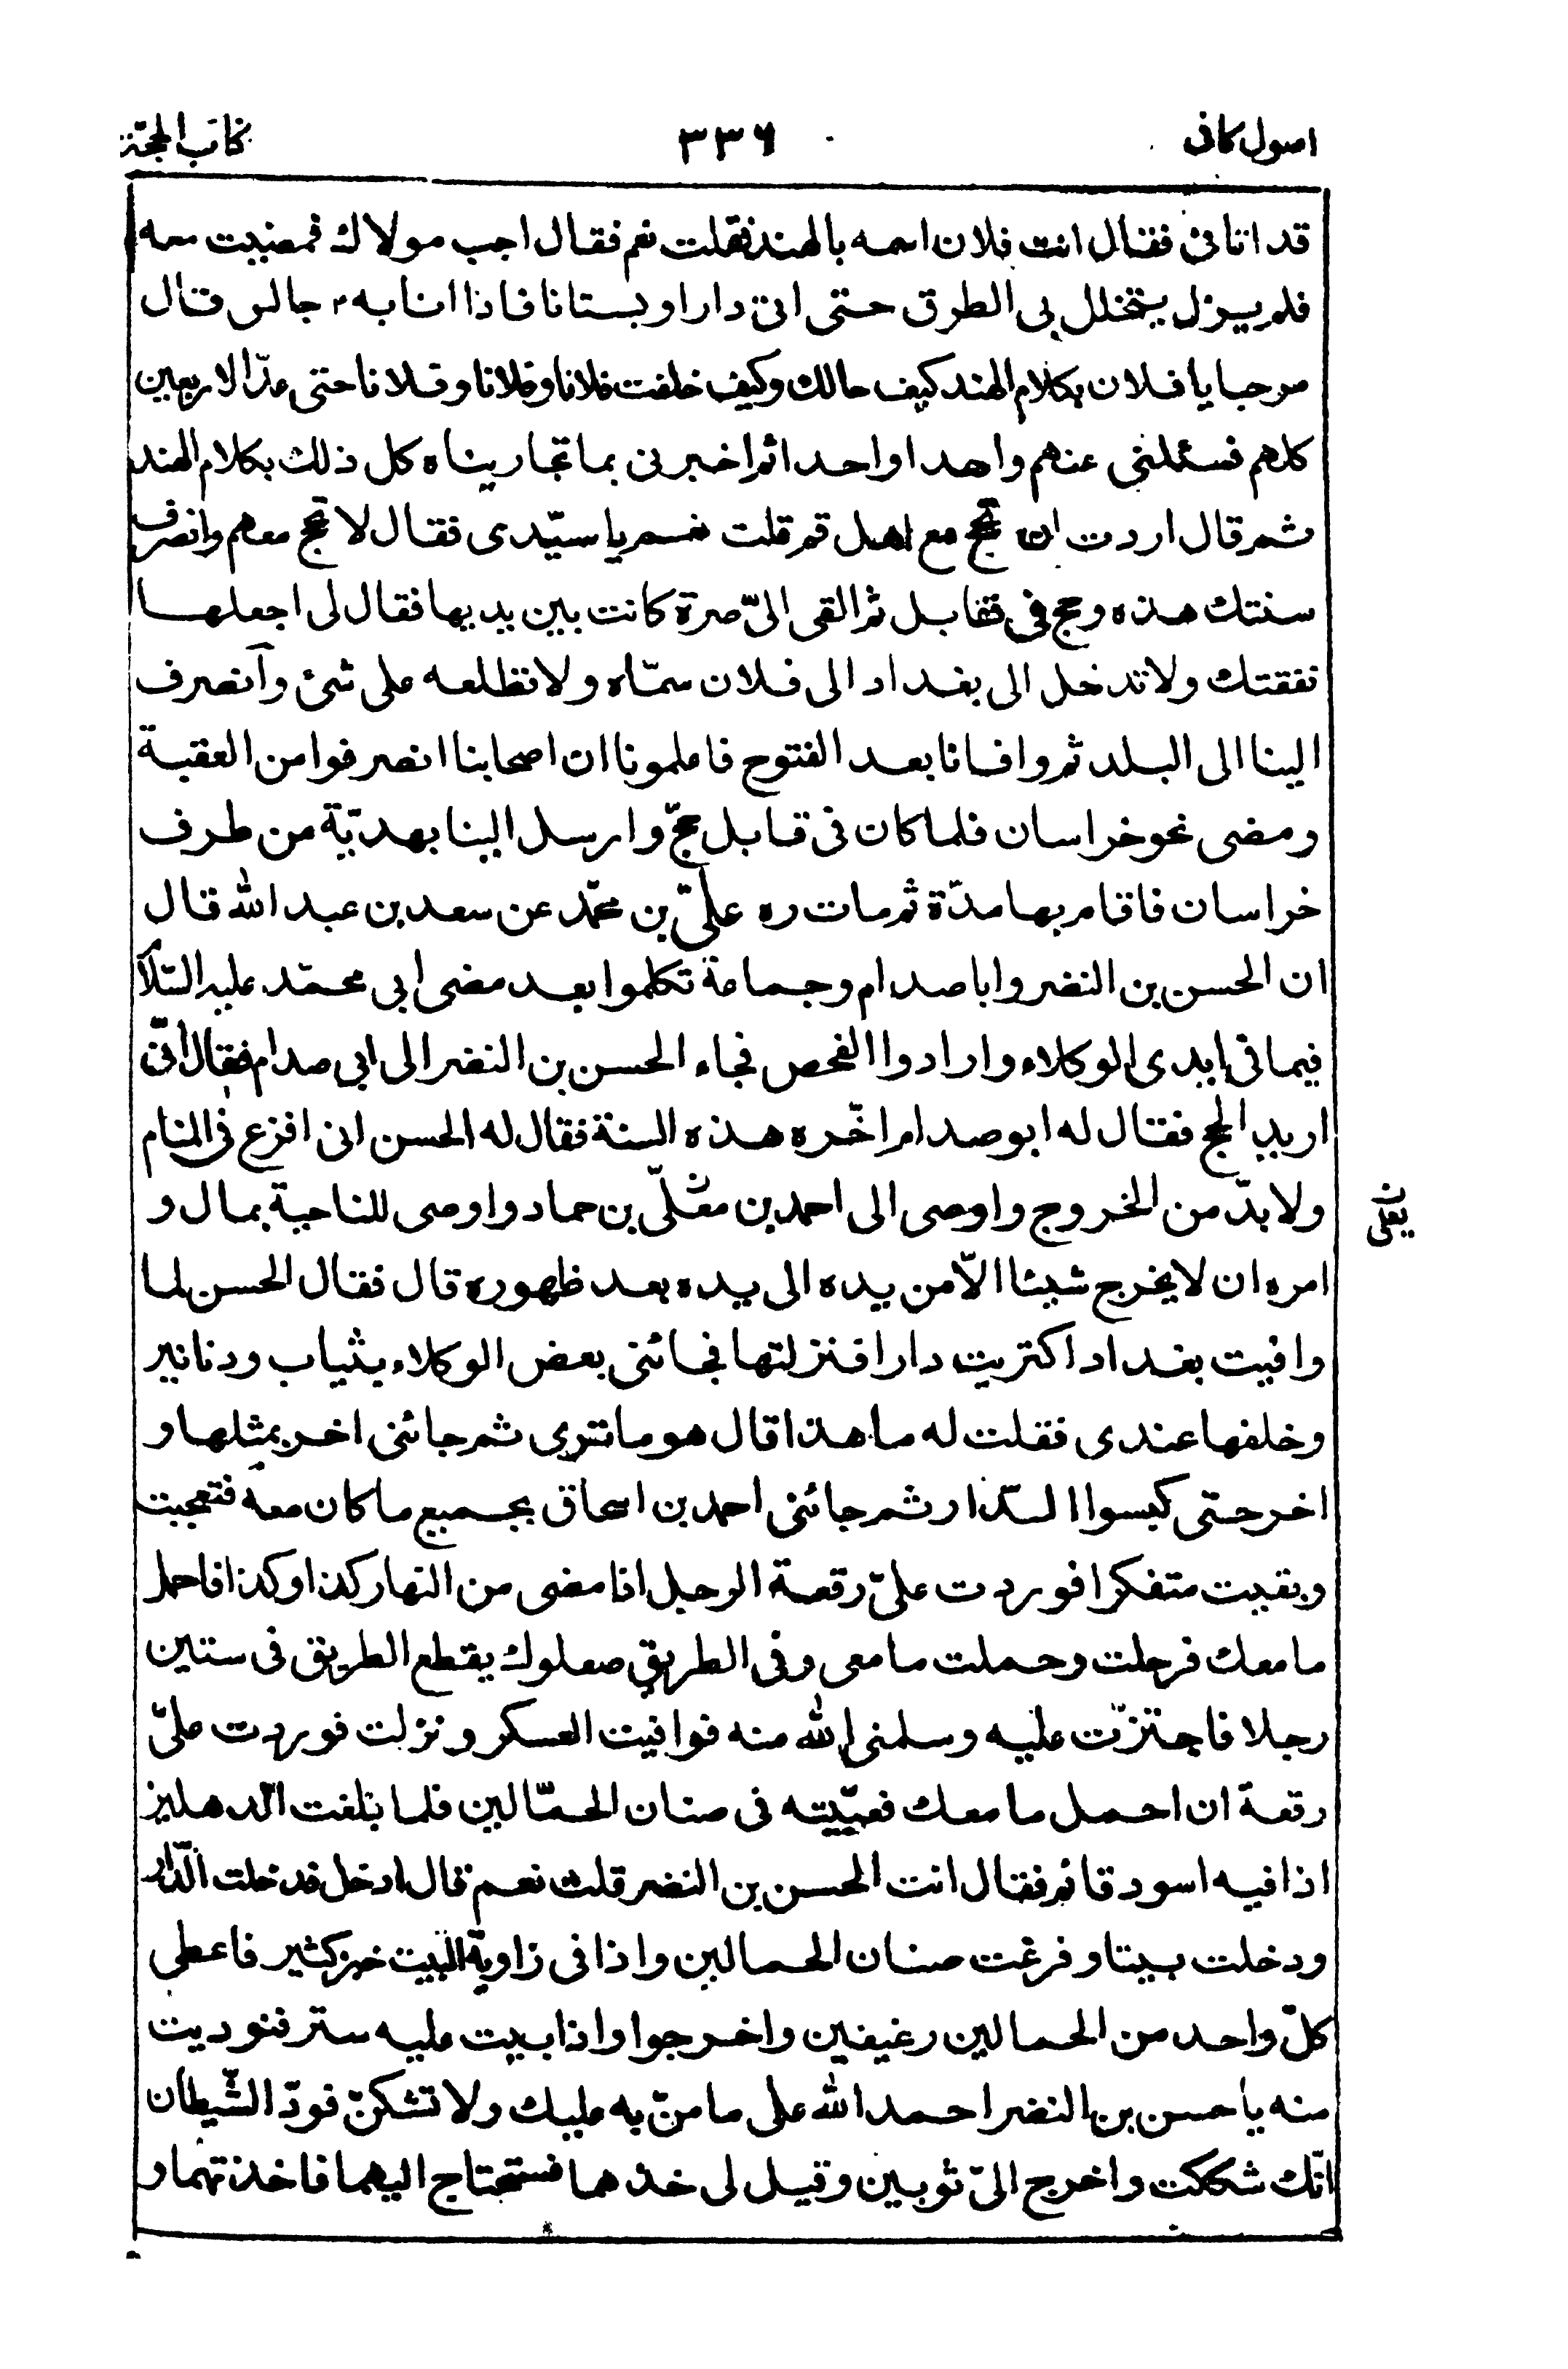 اصول كافى ٣٣٦ كتاب الحجّة
قد اتانى فقال انت فلان اسمه بالهند فقلت نعم فقال اجب مولاك فمضيت معه
فلم يزل يتخلل بى الطرق حتى اتى دارا و بستانا فاذا انا به ۴ جالس قال
مرحبا يا فلان بكلام الهند كيف حالك وكيف خلفت فلانا وفلانا وفلانا حتى عدّ الاربعين
كلهم فسئلنى عنهم واحدا واحدا ثم اخبرنى بما تجاريناه كل ذلك بكلام الهند
ثم قال اردت ان تحج مع اهل قم قلت نعم يا سيّدى فقال لا تحج معهم وانصرف
سنتك هذه وحج فى قابل ثم القى الىّ صرة كانت بين يديها فقال لى اجعلها
نفقتك ولا تدخل الى بغداد الى فلان سمّاه ولا تطلعه على شئ وانصرف
الينا الى البلد ثم وافانا بعد الفتوح فاعلمونا ان اصحابنا انصرفوا من العقبة
ومضى نحو خراسان فلما كان فى قابل حجّ وارسل الينا بهديّة من طرف
خراسان فاقام بها مدّة ثم مات ره علىّ بن محمّد عن سعد بن عبد الله قال
ان الحسن بن النضر وابا صدام وجماعة تكلموا بعد مضى ابى محمّد عليه السّلام
فيما فى ايدى الوكلاء وارادوا الفحص فجاء الحسن بن النضر الى ابى صدام فقال انّى
اريد الحج فقال له ابو صدام اخّره هذه السنة فقال له الحسن انى افزع فى المنام
ولا بدّ من الخروج واوصى الى احمد بن معلّى بن حماد واوصى للناحية بمال و
يعلى ن
امره ان لا يخرج شيئا الّا من يده الى يده بعد ظهوره قال فقال الحسن لما
وافيت بغداد اكتريت دارا فنزلتها فجائنى بعض الوكلاء بثياب ودنانير
وخلفها عندى فقلت له ما هذا قال هو ما ترى ثم جائنى اخر بمثلها و
اخر حتى كبسوا الدّار ثم جائنى احمد بن اسحاق بجميع ما كان معه فتعجبت
وبقيت متفكرا فوردت علىّ رقعة الرجل اذا مضى من النهار كذا وكذا فاحمل
ما معك فرحلت وحملت ما معى وفى الطريق صعلوك يقطع الطريق فى ستين
رجلا فاجتزت عليه وسلمنى الله منه فوافيت العسكر ونزلت فوردت علىّ
رقعة ان احمل ما معك فعبّيته فى صنان الحمّالين فلما بلغت الدهليز
اذا فيه اسود قائم فقال انت الحسن بن النضر قلت نعم قال ادخل فدخلت الدّار
ودخلت بيتا وفرغت صنان الحمالين واذا فى زاوية البيت خبز كثير فاعطى
كلّ واحد من الحمالين رغيفين واخرجوا واذا بيت عليه ستر فنوديت
منه يا حسن بن النضر احمد الله على ما منّ به عليك ولا تشكنّ فودّ الشّيطان
انّك شككت واخرج الىّ ثوبين وقيل لى خذهما فستحتاج اليهما فاخذتهما و